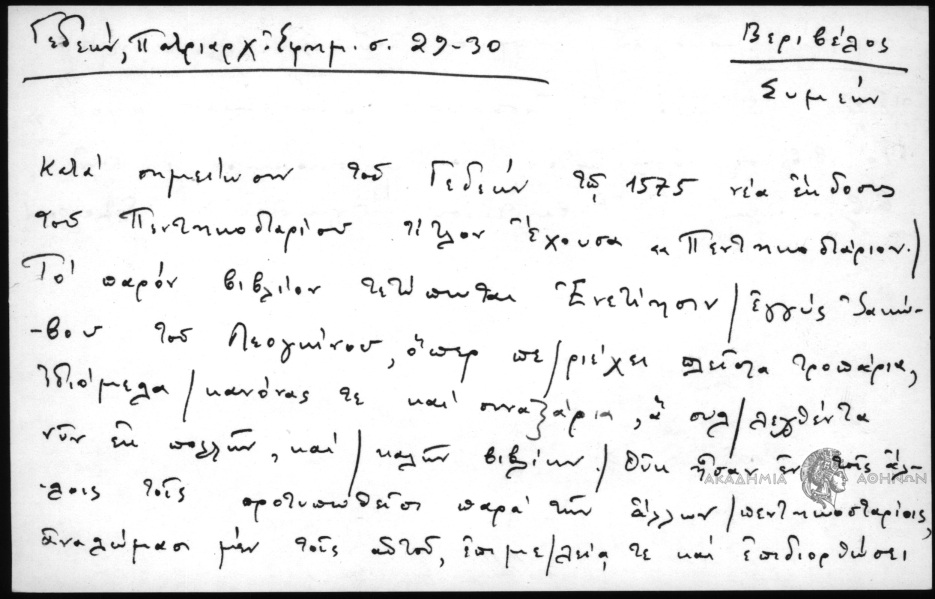 Γεδεών, Πατριαρχ. Ἐφημ. σ. 29-30
Βεριβέλος
Συμεών
Κατά σημείωσιν τοῦ Γεδεών τῷ 1575 νέα ἔκδοσις
τοῦ Πεντηκοσταρίου τίτλον ἔχουσα «Πεντηκοστάριον./
Τό παρόν βιβλίον τετύπωται Ἐνετίησιν/ἐγγύς Ἰακώ-
-βου τοῦ Λεογκίνου, ὅπερ πε/ριέχει πλεῖστα τροπάρια,
ἰδιόμελα/κανόνας τε καί συναξάρια, ἅ συλ/λεχθέντα
νῦν ἐκ πολλῶν, καί/καλῶν βιβλίων./Οὐκ ἦσαν ἐν τοῖς ἄλ-
-λοις τοῖς προτυπωθεῖσι παρά τῶν ἄλλων/πεντηκοσταρίοις,
ἀναλώμασι μέν τοῖς αὐτοῦ, ἐπιμε/λείᾳ τε καί ἐπιδιορθώσει
ΑΚΑΔΗΜΙΑ ΑΘΗΝΩΝ